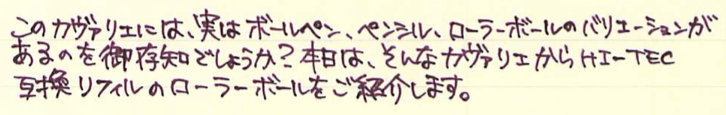 このカヴァリエには、実はボールペン、ペンシル、ローラーボールのバリエーションが
あるのを御存知でしょうか?本日は、そんなカヴァリエからHI-TEC
互換リフィルのローラーボールをご紹介します。